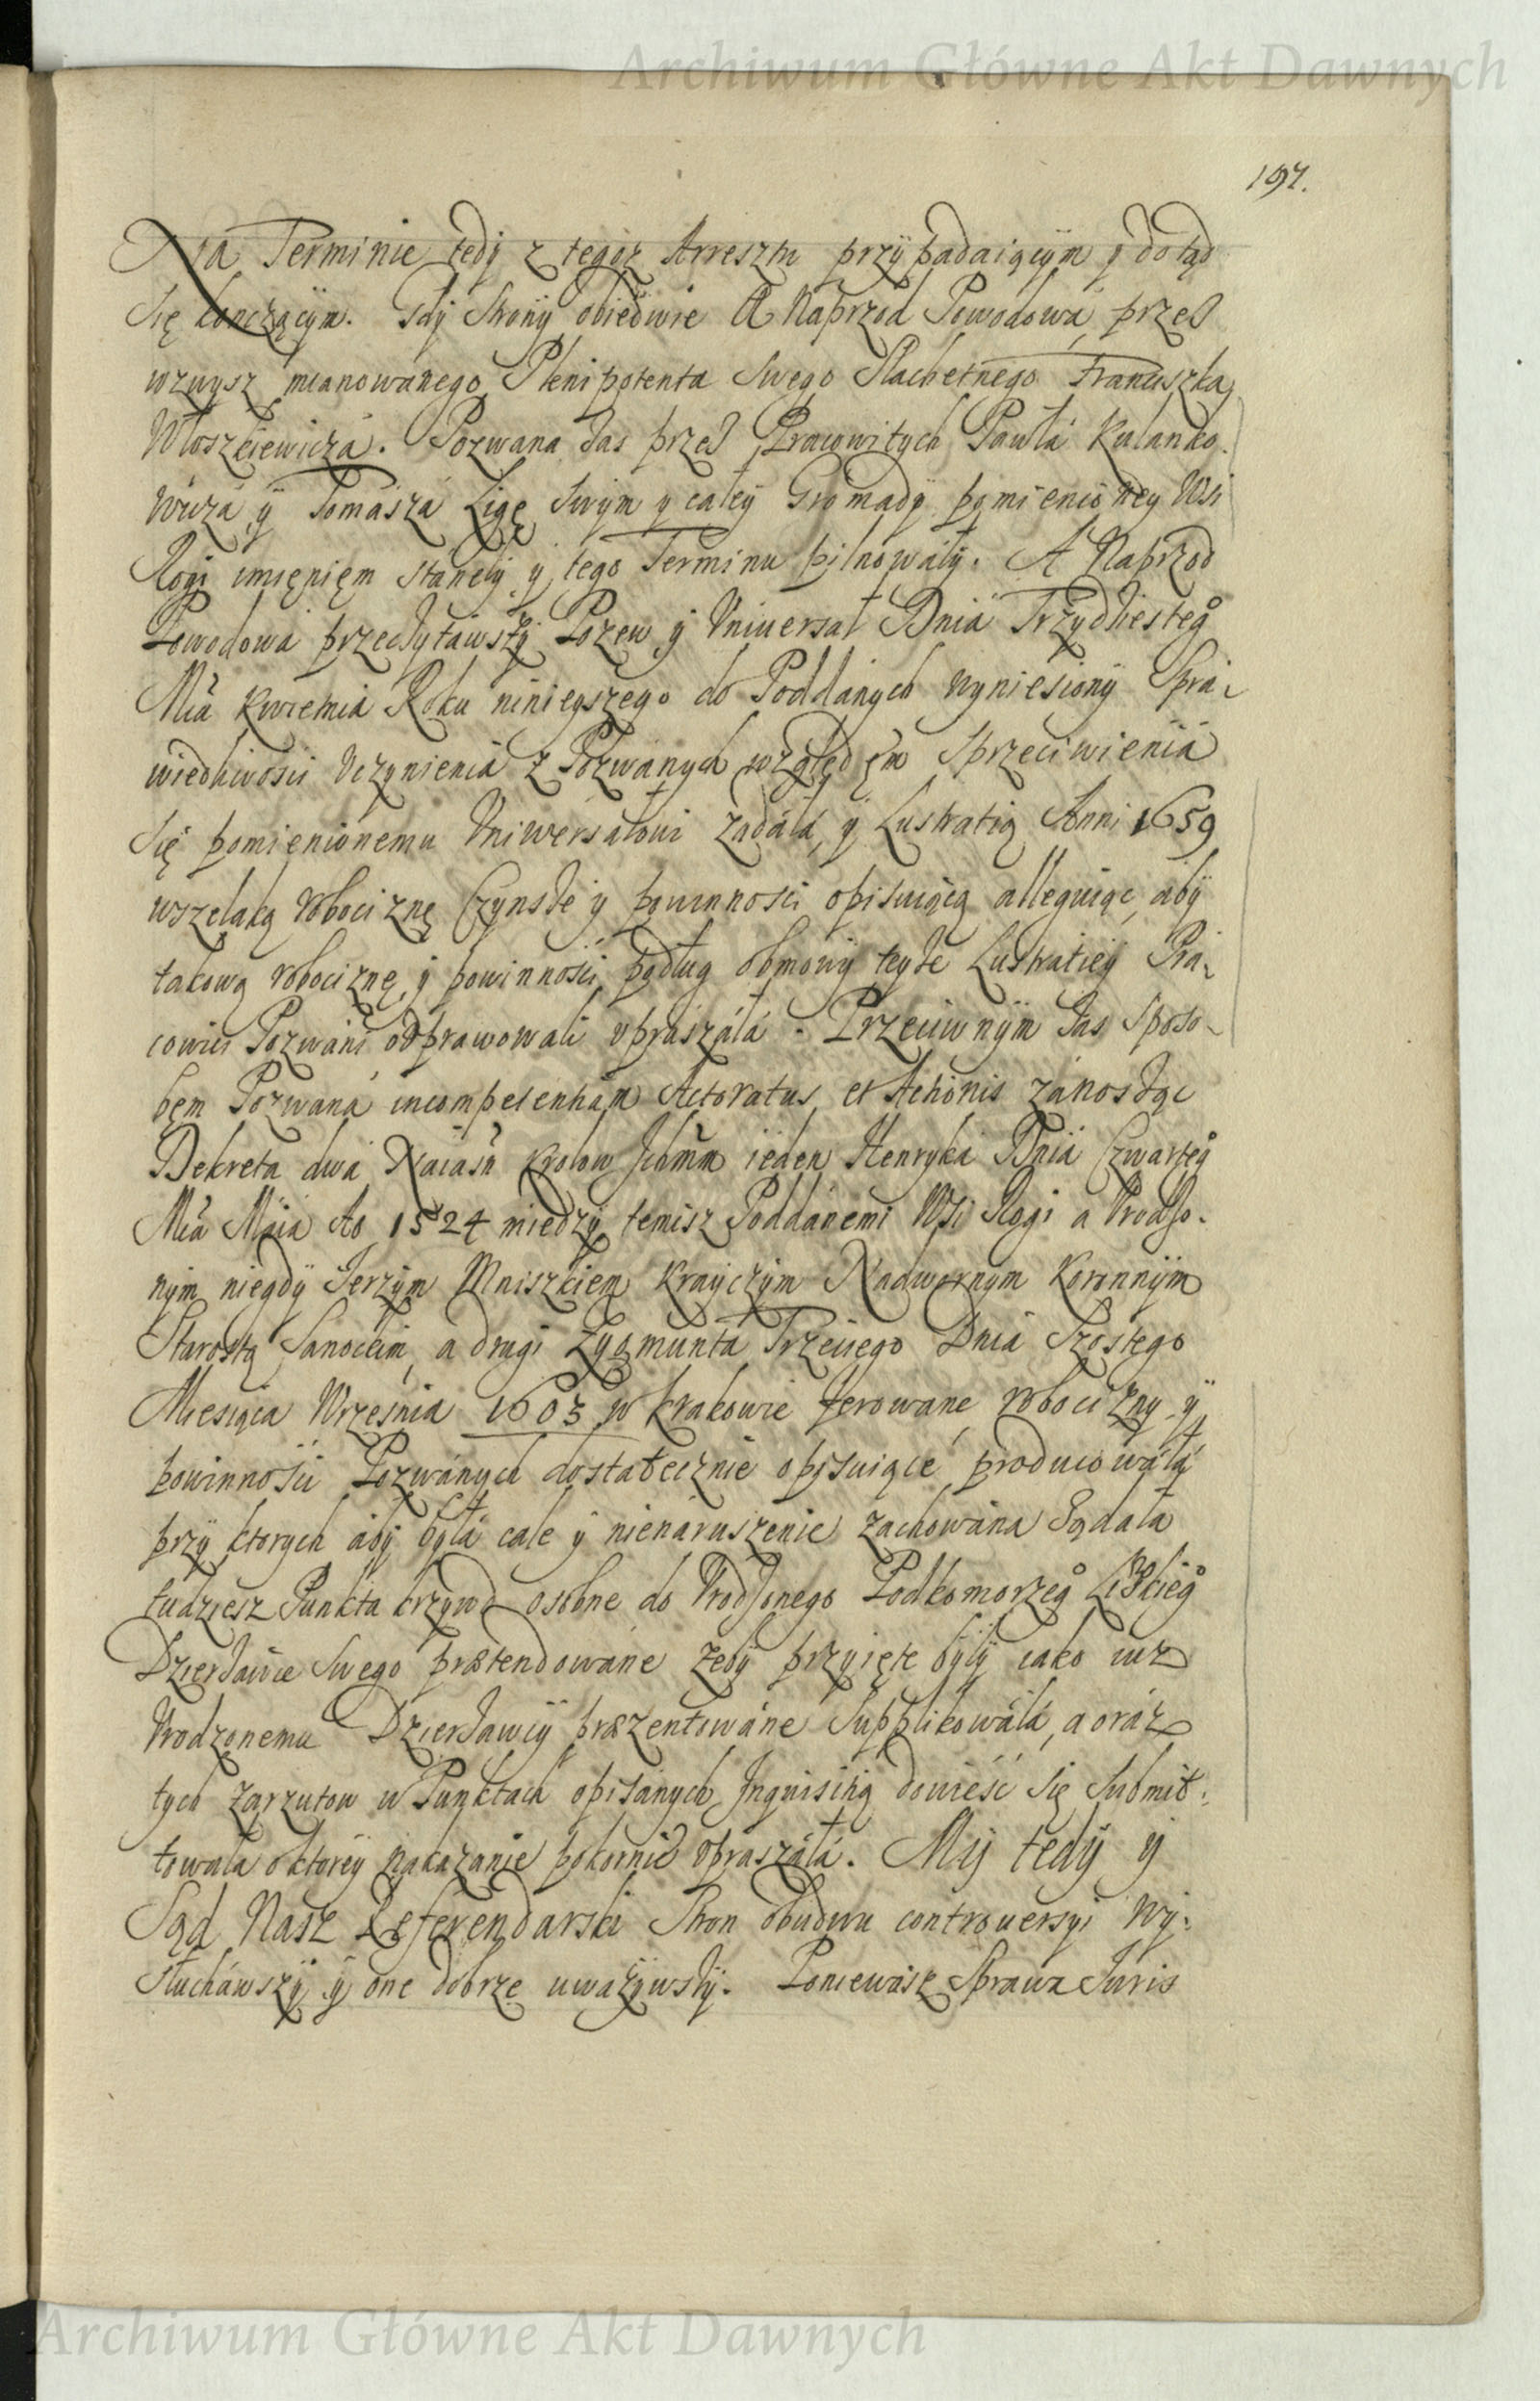 Archiwum Główne Akt Dawnych
197.
Na Terminie tedy z tegoż Arresztu przÿpadaiącym y dotąd
Się kończącÿm. Gdÿ Stronÿ obiedwie A Naprzod Powodowá przez
wzwysz mianowánego Plenipotenta Swego Slachetnego Franciszka
Włoszkiewiczá. Pozwana zas przez Pracowitych Pawłá Kulanko-
wiczá ÿ Tomászá Ligę Swÿm y całeÿ Gromadÿ pomienioneÿ Wsi
Rogi imięnięm stanęłÿ ÿ tego Terminu pilnowáłÿ. A Naprzod
Powodowa przeczytáwszÿ Pozew ÿ Vniuersał Dniá Trzydziesteg°
Mcá Kwietniá Roku ninieyszego do Poddánych wyniesionÿ Sprá-
wiedliwości Vczynieniá z Pozwánych względęm Sprzeciwieniá
Się pomięnionemu Vniwersałoui żądáłá, ÿ Lustratią Anni 1659
wszelaką robociznę Czynsze ÿ powinności opisuiącą alleguiąc, abÿ
takową robociznę, ÿ powinności podług obmowÿ teÿże Lustratieÿ Prá-
cowici Pozwáni odprawowali vpraszáłá. Przeciwnÿm zas Sposo-
bęm Pozwaná incompetentiam Actoratus et Actionis zánosząc
Dekreta dwá Naiáśń Krolow Ichmm ieden Henryká Dniá Czwarteg°
Mcá Máiá A° 1524 miedzÿ temisz Poddánemi Wsi Rogi a Vrodzo-
nym niegdÿ Jerzÿm Mniszkiem Krayczÿm Nadwornym Koronnÿm
Starostą Sanockim, a drugi Zygmuntá Trzeciego Dniá Szostego
Miesiąca Wrześnià 1603 w Krakowie ferowane, robocizny ÿ
powinności Pozwánych dostatecznie opisuiące producowáłá
przÿ ktorych ábÿ byłá cale ÿ nienáruszenie záchowána żądáłá
tudziesz Punkta krzywd osobne do Vrodzonego Podkomorzeg° Liskieg°
Dzierżawce Swego prætendowáne żebÿ przyięte byłÿ iako iuż
Vrodzonemu Dzierżawcÿ præzentowáne Supplikowáłá, a oráz
tych zarzutow w Punktach opisánych Inquisitią dowieść się Submit-
towałá o ktoreÿ nakazanie pokornie vpraszáłá. Mÿ tedÿ ÿ
Sąd Nasz Referendarski Stron obudwu controuersyi Wÿ-
słucháwszÿ ÿ one dobrze uwáżywszÿ. Poniewász Sprawa Juris
Archiwum Główne Akt Dawnych